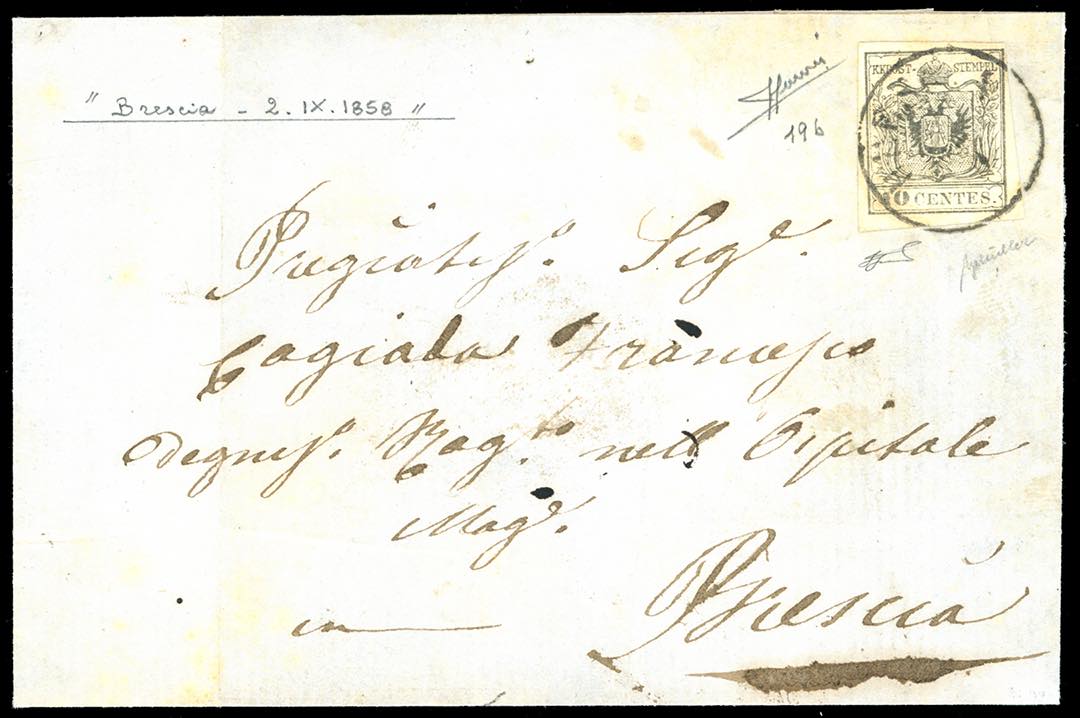 " Brescia - 2. IX. 1858 "
19b
KKPOST-STEMPEL
10 CENTES.
Pregiatis.º Sig.e
Cagiada Francesco
Degnis.º Rag.to nell Ospitale
Mag.e
in Brescia